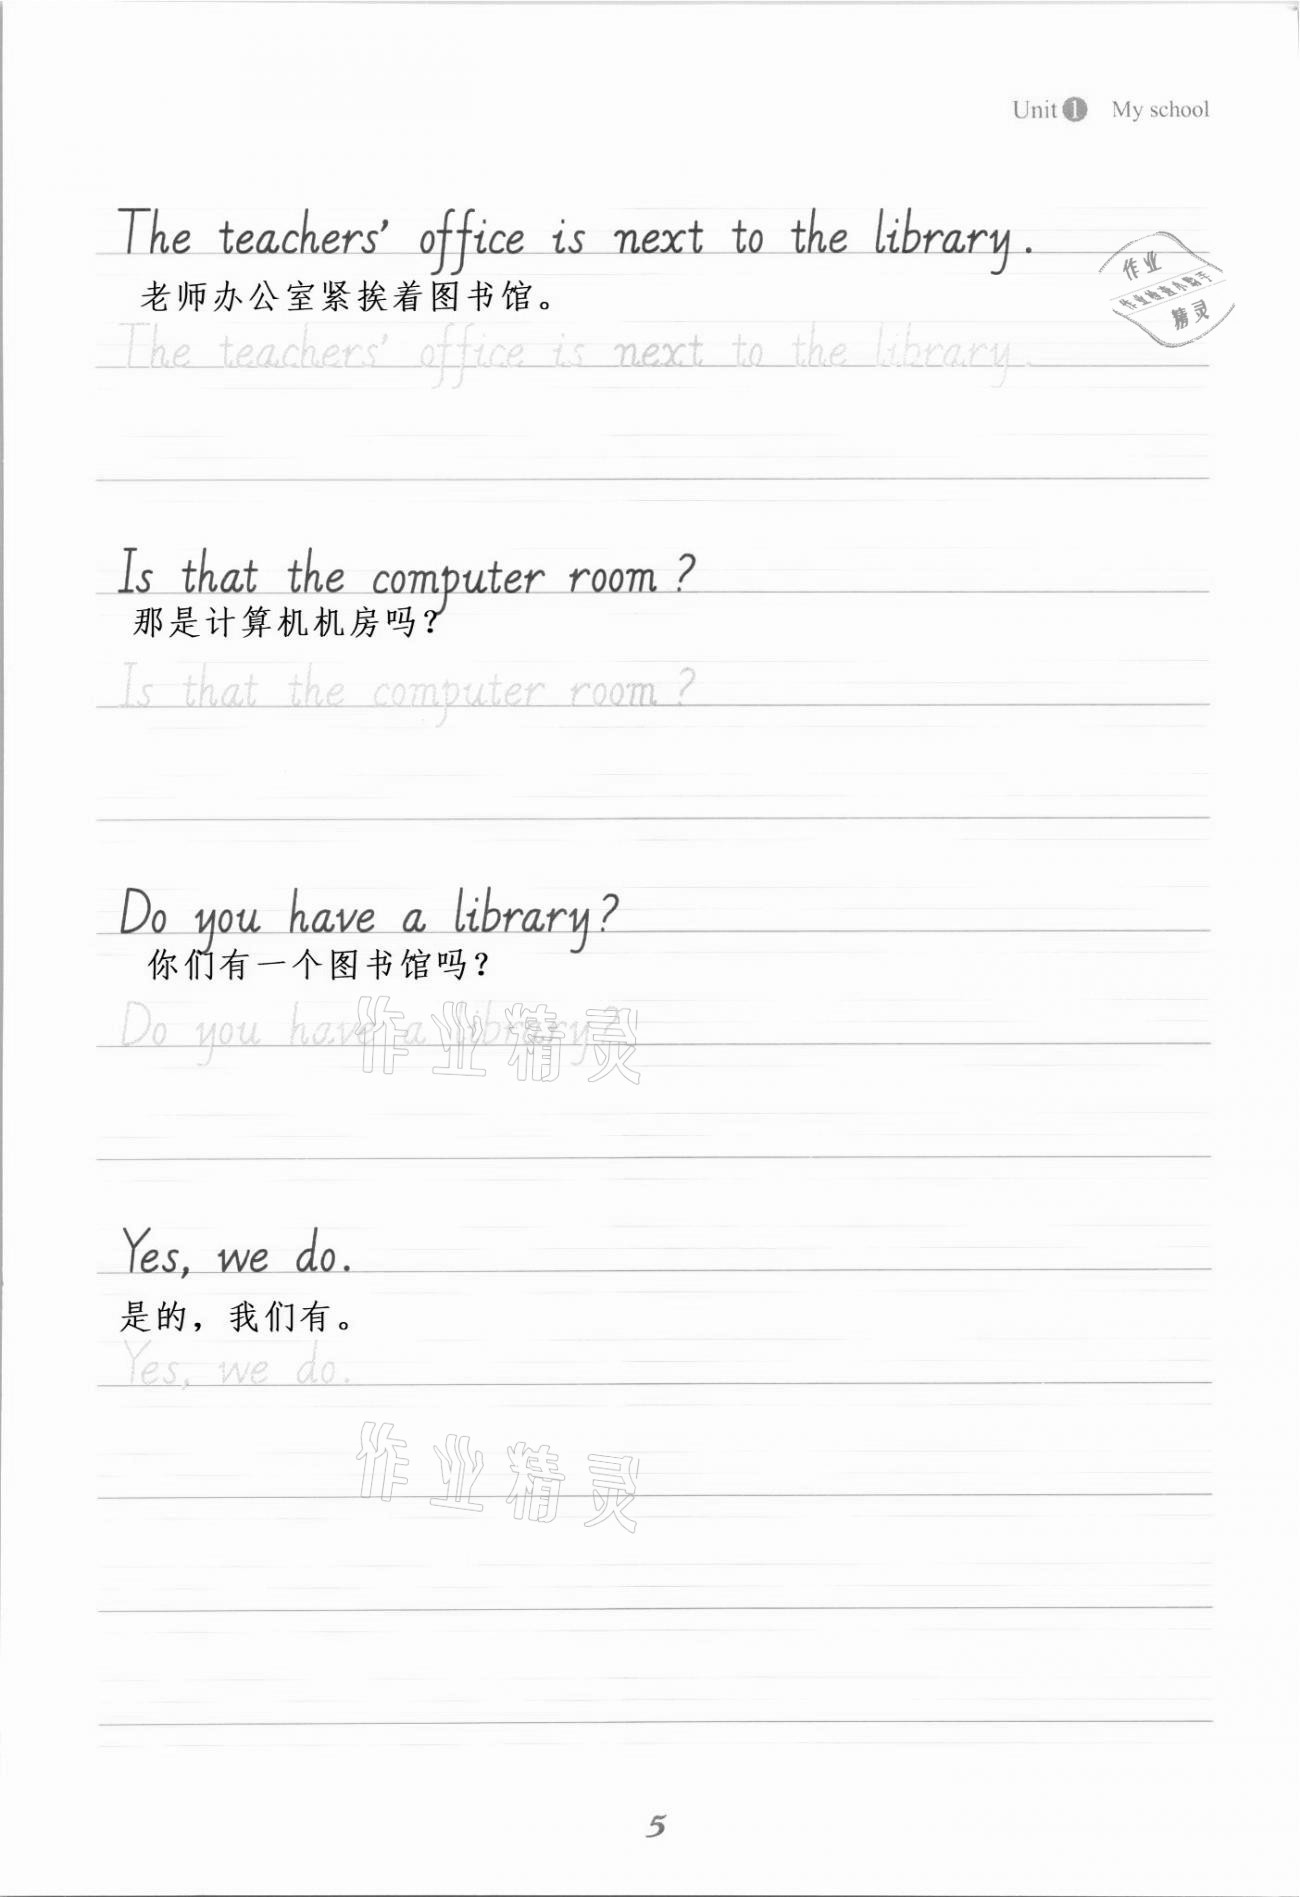 Unit 1 My school
The teachers' office is next to the library.
作业
老师办公室紧挨着图书馆。
作业检查小助手
精灵
The teachers' office is next to the library.
Is that the computer room?
那是计算机机房吗？
Is that the computer room?
Do you have a library?
你们有一个图书馆吗？
Do you have a library?
作业精灵
Yes, we do.
是的，我们有。
Yes, we do.
作业精灵
5